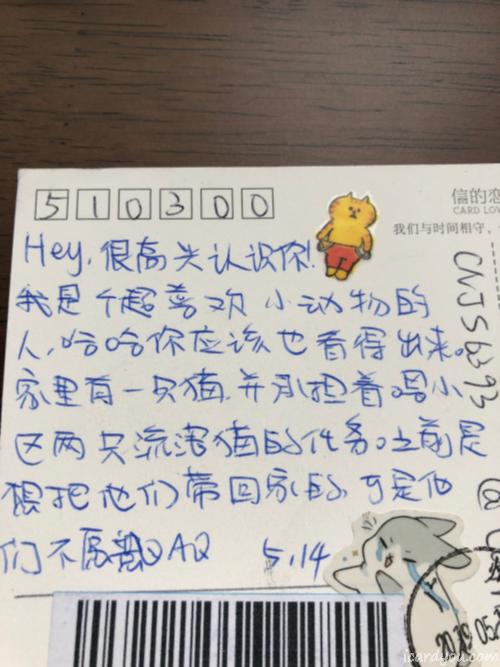 510300
信的恋
CARD LOV
我们与时间相守,
Hey,很高兴认识你!
我是个超喜欢小动物的
人,哈哈你应该也看得出来。
家里有一只猫,并承担着喂小
区两只流浪猫的任务。之前是
想把他们带回家的,可是他
们不愿意QAQ 5.14
CNJS6393
@
2019.05.2
icardyou.com